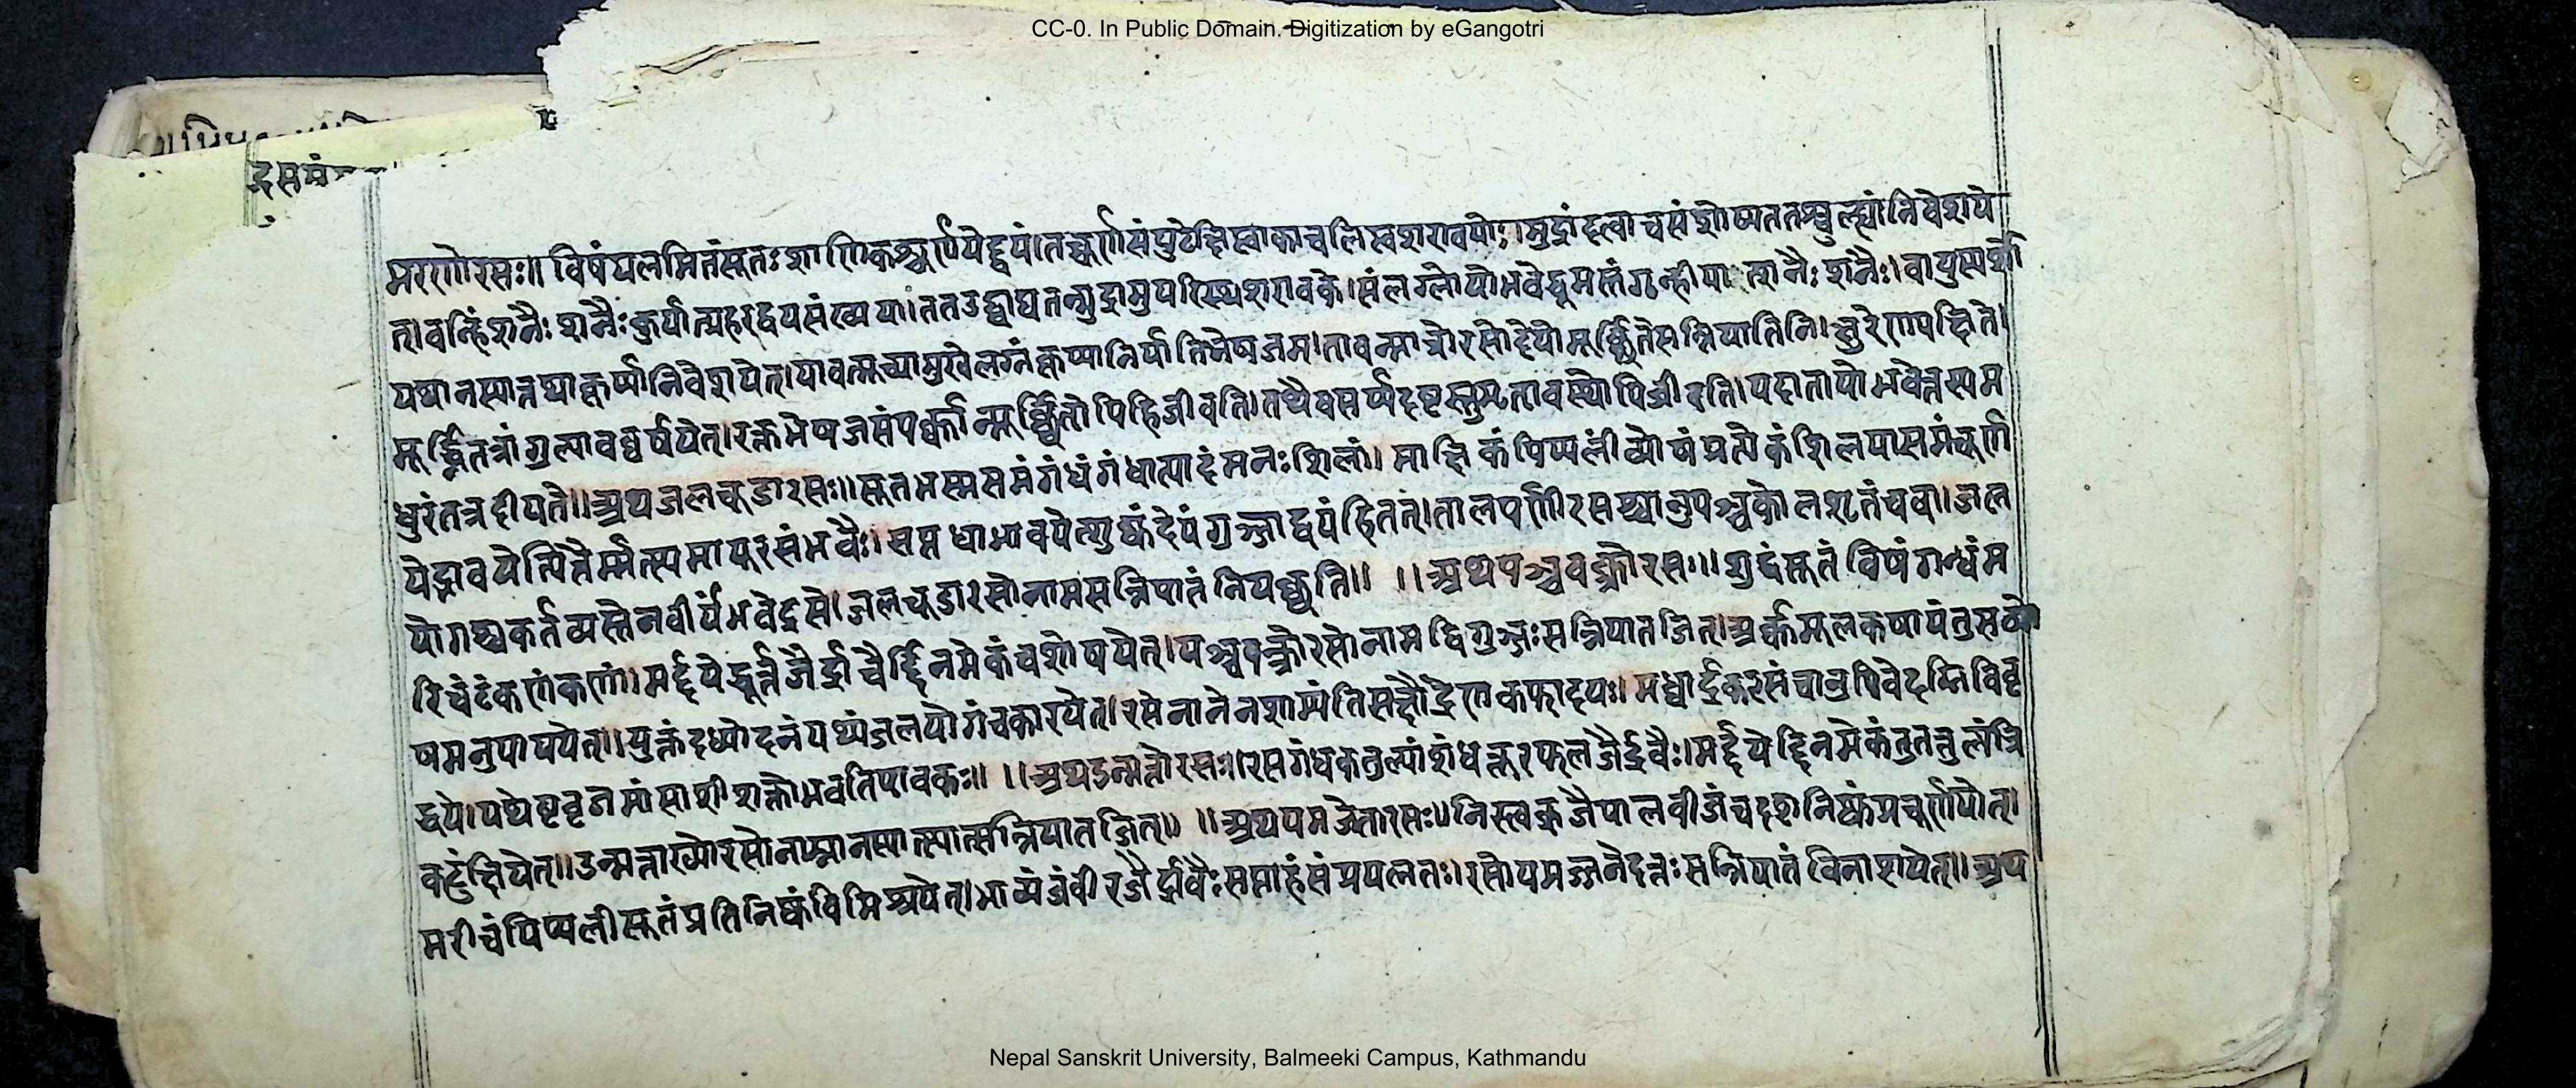 CC-0. In Public Domain. Digitization by eGangotri
द्रसमं
मरणोरसः॥ विषंपलमितंसूतःशाणिकश्चूर्णयेद्द्वयं।तच्चूर्णसंपुटेक्षिप्त्वाकाचलिप्तशरावयोः।मुद्रांदत्वाचसंशोष्यततश्चुल्ह्यांनिवेशये
त्।वन्हिंशनैः शनैःकुर्यात्प्रहरद्वयसंख्यया।ततउद्घाट्यतन्मुद्रामुपरिस्थशरावके।संलग्नोयोभवेद्धूमस्तंगृन्हीयात्छनैः शनैः।वायुस्पर्शो
यथानस्यात्तथाकूप्यांनिवेशयेत्।यावत्सूच्यामुखेलग्नंकूप्यानिर्यातिभेषजम्।तावन्मात्रोरसोदेयोमूर्छितेसन्निपातिनि।क्षुरेणप्रछिते
मूर्द्ध्नितत्रांगुल्यावघर्षयेत्।रक्तभेषजसंपर्कान्मूर्छितोपिहिजीवति।तथैवसर्पदष्टस्तुमृतावस्थोपिजीवति।यदातापोभवेत्तस्यम
धुरंतत्रदीयते॥अथजलचूडारसः॥सूतभस्मसमंगंधंगंधात्पादंमनःशिलां। माक्षिकंपिप्पलींव्योषंप्रत्येकंशिलयासमंचूर्ण
येद्भावयेत्पित्तैर्मत्स्यमायूरसंभवैः।सप्तधाभावयेत्शुष्कंदेयंगुञ्जाद्वयंहितत्।तालपर्णीरसश्चानुपञ्चकोलशृतंचवा।जल
योगश्चकर्तव्यस्तेनवीर्यंभवेद्रसे।जलचूडारसोनामसन्निपातंनियच्छति॥ ॥अथपञ्चवक्त्रोरसः॥शुद्धंसूतंविषंगन्धंम
रिचंटंकणंकणां।मर्द्दयेद्धूर्त्तजैर्द्रावैर्द्दिनमेकंचशोषयेत्।पञ्चवक्त्रोरसोनामद्विगुञ्जःसन्निपातजित्।अर्कमूलकषायंतुसव्यो
षमनुपाययेत्।युक्तंदध्योदनंपथ्यंजलयोगंचकारयेत्।रसेनानेनशाम्यंतिसक्षौद्रेणकफादयः।मध्वार्द्रकरसंचानुपिवेदग्निविवृ
द्धये।यथेष्टघृतमांसाशीशक्तोभवतिपावकः॥ ॥अथउन्मत्तोरसः॥रसगंधकतुल्यांशंधत्तूरफलजैर्द्रवैः।मर्द्दयेद्दिनमेकंतुतत्तुल्यंत्रि
कटुंक्षिपेत्॥उन्मत्ताख्योरसोनाम्नानस्यात्स्यात्सन्निपातजित्॥ ॥अथयमजेतारसः॥निस्त्वक्जैपालवीजंचदशनिष्कंप्रचूर्णयेत्।
मरीचंपिप्पलीसूतंप्रतिनिष्कंविमिश्रयेत्।भाव्यंजंवीरजैर्द्रावैःसप्ताहंसंप्रयत्नतः।रसोयमञ्जनेदत्तःसन्निपातंविनाशयेत्॥अथ
Nepal Sanskrit University, Balmeeki Campus, Kathmandu